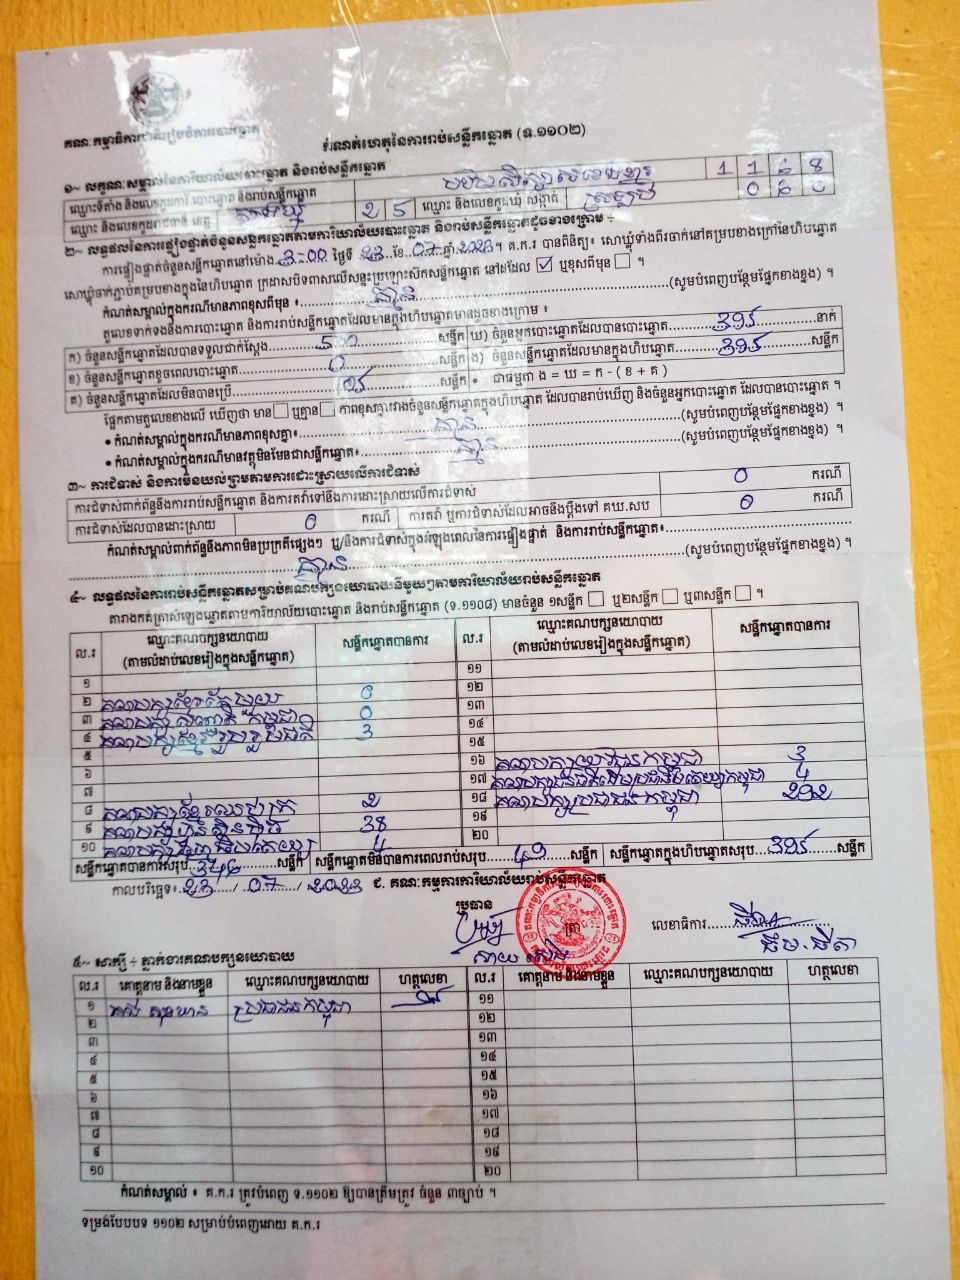 គណៈកម្មាធិការជាតិរៀបចំការបោះឆ្នោត
កំណត់ហេតុនៃការរាប់សន្លឹកឆ្នោត (ទ.១១០២)
១~ លក្ខណៈសម្គាល់នៃការិយាល័យបោះឆ្នោត និងរាប់សន្លឹកឆ្នោត
ឈ្មោះទីតាំង និងលេខកូដការិ.បោះឆ្នោត និងរាប់សន្លឹកឆ្នោត 1 1 6 8
ឈ្មោះ និងលេខកូដរាជធានី ខេត្ត 2 5 ឈ្មោះ និងលេខកូដឃុំ សង្កាត់ 0 6 0
២~ លទ្ធផលនៃការផ្ទៀងផ្ទាត់ចំនួនសន្លឹកឆ្នោតតាមការិយាល័យបោះឆ្នោត និងរាប់សន្លឹកឆ្នោតដូចខាងក្រោម ÷
ការផ្ទៀងផ្ទាត់ចំនួនសន្លឹកឆ្នោតនៅម៉ោង 3:00 ថ្ងៃទី 23 ខែ 07 ឆ្នាំ 2023 ។ គ.ក.រ បានពិនិត្យ៖ សោឃ្លុំទាំងពីរចាក់នៅគម្របខាងក្រៅនៃហិបឆ្នោត
សោឃ្លុំចាក់ភ្ជាប់គម្របខាងក្នុងនៃហិបឆ្នោត ក្រដាសបិទពាសលើសន្ទះប្រឡោះស៊កសន្លឹកឆ្នោត នៅដដែល ☑ ឬខុសពីមុន ☐ ។
កំណត់សម្គាល់ក្នុងករណីមានភាពខុសពីមុន ៖ គ្មាន (សូមបំពេញបន្ថែមផ្នែកខាងខ្នង) ។
តួលេខទាក់ទងនឹងការបោះឆ្នោត និងការរាប់សន្លឹកឆ្នោតដែលមានក្នុងហិបឆ្នោតមានដូចខាងក្រោម ៖
ក) ចំនួនសន្លឹកឆ្នោតដែលបានទទួលជាក់ស្តែង 500 សន្លឹក ឃ) ចំនួនអ្នកបោះឆ្នោតដែលបានបោះឆ្នោត 395 នាក់
ខ) ចំនួនសន្លឹកឆ្នោតខូចពេលបោះឆ្នោត 0 សន្លឹក ង) ចំនួនសន្លឹកឆ្នោតដែលមានក្នុងហិបឆ្នោត 395 សន្លឹក
គ) ចំនួនសន្លឹកឆ្នោតដែលមិនបានប្រើ 105 សន្លឹក • ជាធម្មតា ង = ឃ = ក - ( ខ + គ )
ផ្អែកតាមតួលេខខាងលើ ឃើញថា មាន ☐ ឬគ្មាន ☐ ភាពខុសគ្នារវាងចំនួនសន្លឹកឆ្នោតក្នុងហិបឆ្នោត ដែលបានរាប់ឃើញ និងចំនួនអ្នកបោះឆ្នោត ដែលបានបោះឆ្នោត ។
• កំណត់សម្គាល់ក្នុងករណីមានភាពខុសគ្នា៖ គ្មាន (សូមបំពេញបន្ថែមផ្នែកខាងខ្នង) ។
• កំណត់សម្គាល់ក្នុងករណីមានវត្ថុមិនមែនជាសន្លឹកឆ្នោត៖ គ្មាន (សូមបំពេញបន្ថែមផ្នែកខាងខ្នង) ។
៣~ ការជំទាស់ និងការមិនយល់ព្រមតាមការដោះស្រាយលើការជំទាស់
ការជំទាស់ពាក់ព័ន្ធនឹងការរាប់សន្លឹកឆ្នោត និងការតវ៉ាទៅនឹងការដោះស្រាយលើការជំទាស់ 0 ករណី
ការជំទាស់ដែលបានដោះស្រាយ 0 ករណី ការតវ៉ា ឬការជំទាស់ដែលអាចនឹងប្តឹងទៅ គឃ.សប 0 ករណី
កំណត់សម្គាល់ពាក់ព័ន្ធនឹងភាពមិនប្រក្រតីផ្សេងៗ ឬ/និងការជំទាស់ក្នុងអំឡុងពេលនៃការផ្ទៀងផ្ទាត់ និងការរាប់សន្លឹកឆ្នោត៖
គ្មាន (សូមបំពេញបន្ថែមផ្នែកខាងខ្នង) ។
៤~ លទ្ធផលនៃការរាប់សន្លឹកឆ្នោតសម្រាប់គណបក្សនយោបាយនីមួយៗតាមការិយាល័យរាប់សន្លឹកឆ្នោត
តារាងកត់ត្រាសំឡេងឆ្នោតតាមការិយាល័យបោះឆ្នោត និងរាប់សន្លឹកឆ្នោត (ទ.១១០៨) មានចំនួន ១សន្លឹក ☐ ឬ២សន្លឹក ☐ ឬ៣សន្លឹក ☐ ។
ល.រ ឈ្មោះគណបក្សនយោបាយ (តាមលំដាប់លេខរៀងក្នុងសន្លឹកឆ្នោត) សន្លឹកឆ្នោតបានការ ល.រ ឈ្មោះគណបក្សនយោបាយ (តាមលំដាប់លេខរៀងក្នុងសន្លឹកឆ្នោត) សន្លឹកឆ្នោតបានការ
១ ១១
២ គណបក្សខ្មែរតែមួយ 0 ១២
៣ 0 ១៣
៤ គណបក្សខ្មែររួបរួមជាតិ 3 ១៤
៥ ១៥
៦ ១៦ គណបក្សយុវជនកម្ពុជា 3
៧ ១៧ 4
៨ គណបក្ស 2 ១៨ គណបក្សប្រជាជនកម្ពុជា 292
៩ គណបក្សហ៊្វុនស៊ិនប៉ិច 38 ១៩
១០ 4 ២០
សន្លឹកឆ្នោតបានការសរុប 346 សន្លឹក សន្លឹកឆ្នោតមិនបានការពេលរាប់សរុប 49 សន្លឹក សន្លឹកឆ្នោតក្នុងហិបឆ្នោតសរុប 395 សន្លឹក
កាលបរិច្ឆេទ៖ 23 / 07 / 2023 ជ. គណៈកម្មការការិយាល័យរាប់សន្លឹកឆ្នោត
ប្រធាន
លេខាធិការ
៥~ សាក្សី ÷ ភ្នាក់ងារគណបក្សនយោបាយ
ល.រ គោត្តនាម និងនាមខ្លួន ឈ្មោះគណបក្សនយោបាយ ហត្ថលេខា ល.រ គោត្តនាម និងនាមខ្លួន ឈ្មោះគណបក្សនយោបាយ ហត្ថលេខា
១ ប្រជាជនកម្ពុជា ១១
២ ១២
៣ ១៣
៤ ១៤
៥ ១៥
៦ ១៦
៧ ១៧
៨ ១៨
៩ ១៩
១០ ២០
កំណត់សម្គាល់ ៖ គ.ក.រ ត្រូវបំពេញ ទ.១១០២ ឱ្យបានត្រឹមត្រូវ ចំនួន ៣ច្បាប់ ។
ទម្រង់បែបបទ ១១០២ សម្រាប់បំពេញដោយ គ.ក.រ